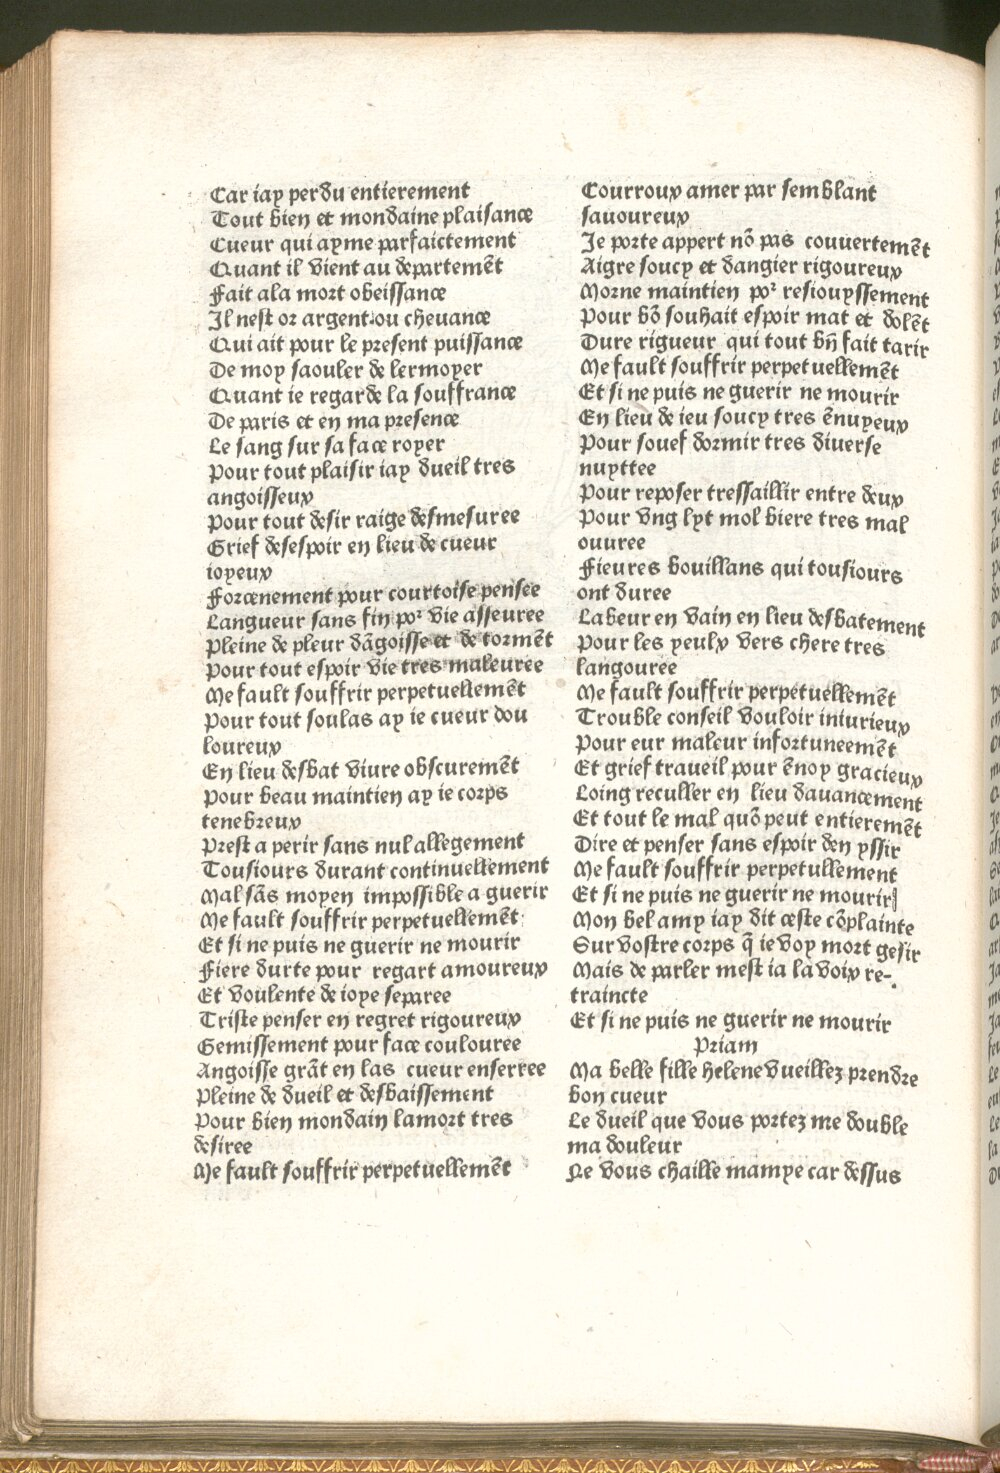 Car iay perdu entierement
Tout bien et mondaine plaisance
Cueur qui ayme parfaictement
Quant il vient au departemẽt
Fait ala mort obeissance
Il nest or argent ou cheuance
Qui ait pour le present puissance
De moy saouler de lermoyer
Quant ie regarde la souffrance
De paris et en ma presence
Le sang sur sa face royer
Pour tout plaisir iay dueil tres
angoisseux
Pour tout desir raige desmesuree
Grief desespoir en lieu de cueur
ioyeux
Forcenement pour courtoise pensee
Langueur sans fin poꝛ vie asseuree
Pleine de pleur dãgoisse et de tormẽt
Pour tout espoir vie tres maleuree
Me fault souffrir perpetuellemẽt
Pour tout soulas ay ie cueur dou
loureux
En lieu desbat viure obscuremẽt
Pour beau maintien ay ie corps
tenebreux
Prest a perir sans nul allegement
Tousiours durant continuellement
Mal sãs moyen impossible a guerir
Me fault souffrir perpetuellemẽt
Et si ne puis ne guerir ne mourir
Fiere durte pour regart amoureux
Et voulente de ioye separee
Triste penser en regret rigoureux
Gemissement pour face coulouree
Angoisse grãt en las cueur enserree
Pleine de dueil et desbaissement
Pour bien mondain lamort tres
desiree
Me fault souffrir perpetuellemẽt
Courroux amer par semblant
sauoureux
Je porte appert nõ pas couuertemẽt
Aigre soucy et dangier rigoureux
Morne maintien poꝛ resiouyssement
Pour bõ souhait espoir mat et dolẽt
Dure rigueur qui tout bñ fait tarir
Me fault souffrir perpetuellemẽt
Et si ne puis ne guerir ne mourir
En lieu de ieu soucy tres ẽnuyeux
Pour souef dormir tres diuerse
nuyttee
Pour reposer tressaillir entre deux
Pour vng lyt mol biere tres mal
ouuree
Fieures bouillans qui tousiours
ont duree
Labeur en vain en lieu desbatement
Pour les yeulx vers chere tres
langouree
Me fault souffrir perpetuellemẽt
Trouble conseil vouloir iniurieux
Pour eur maleur infortuneemẽt
Et grief traueil pour ẽnoy gracieux
Loing reculler en lieu dauancement
Et tout le mal quõ peut entieremẽt
Dire et penser sans espoir den yssir
Me fault souffrir perpetullement
Et si ne puis ne guerir ne mourir
Mon bel amy iay dit ceste cõplainte
Sur vostre corps q̃ ie voy mort gesir
Mais de parler mest ia la voix re-
traincte
Et si ne puis ne guerir ne mourir
Priam
Ma belle fille helene vueillez prendre
bon cueur
Le dueil que vous portez me double
ma douleur
Ne vous chaille mamye car dessus